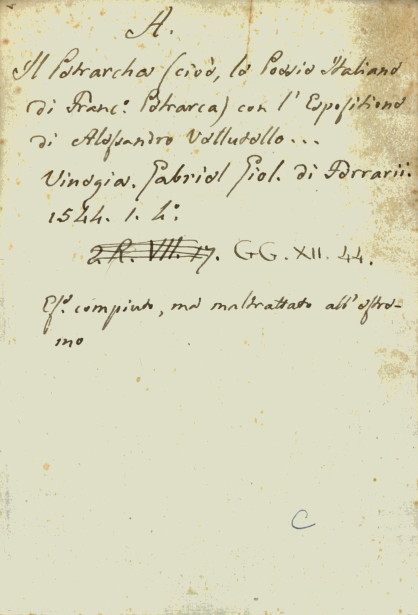 A.
Il Petrarcha (cioè, le Poesie Italiane
di Franc.º Petrarca) con l'Espositione
di Alessandro Vellutello...
Vinegia. Gabriel Giol. di Ferrarii.
1544. 1. 4.º
2 R. VII. 17. GG. XII. 44.
Es.º compiuto, ma maltrattato all'estre-
mo
C